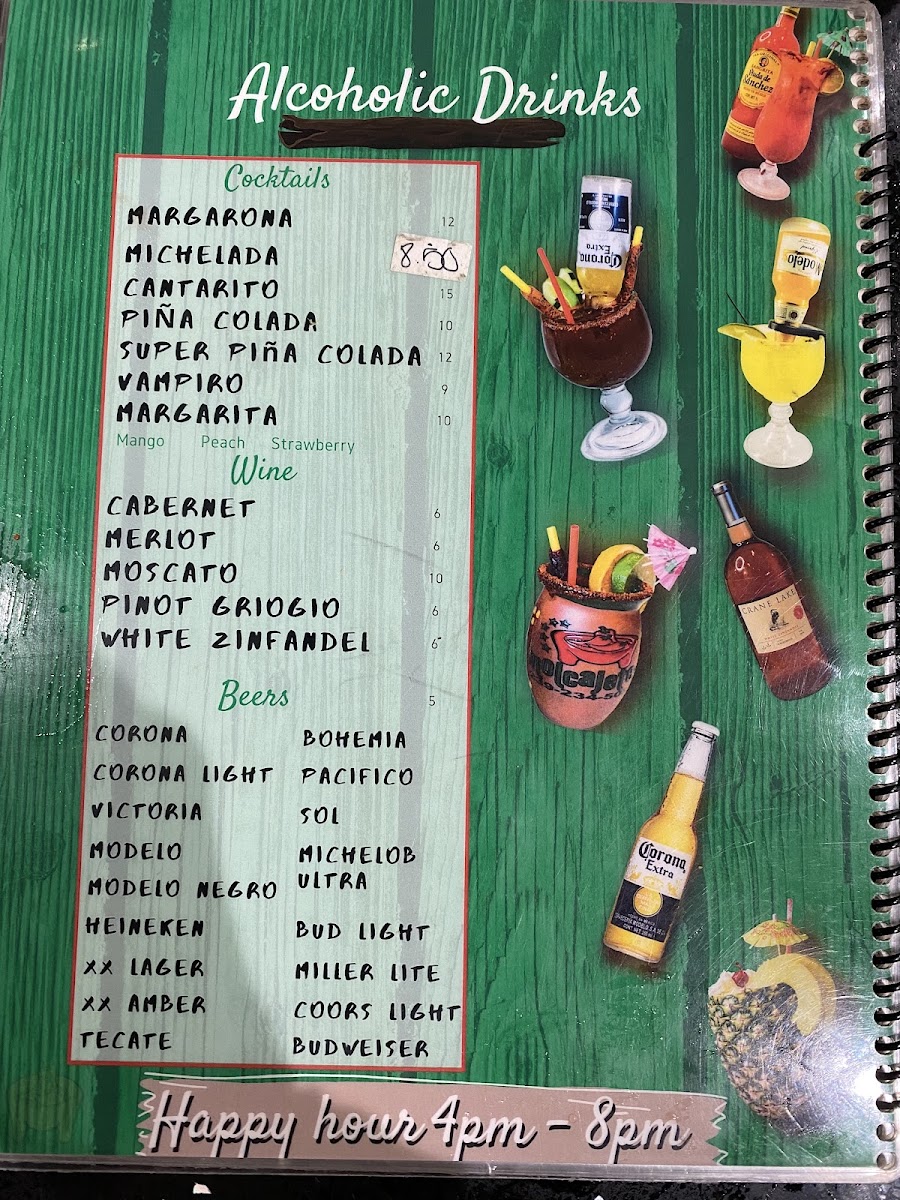 Alcoholic Drinks
Cocktails
MARGARONA 12
MICHELADA 8.50
CANTARITO 15
PIÑA COLADA 10
SUPER PIÑA COLADA 12
VAMPIRO 9
MARGARITA 10
Mango Peach Strawberry
Wine
CABERNET 6
MERLOT 6
MOSCATO 10
PINOT GRIOGIO 6
WHITE ZINFANDEL 6
Beers 5
CORONA
CORONA LIGHT
VICTORIA
MODELO
MODELO NEGRO
HEINEKEN
XX LAGER
XX AMBER
TECATE
BOHEMIA
PACIFICO
SOL
MICHELOB
ULTRA
BUD LIGHT
MILLER LITE
COORS LIGHT
BUDWEISER
Happy hour 4pm - 8pm
Sanchez
Corona
Extra
Modelo
CRANE LAKE
Corona
Extra